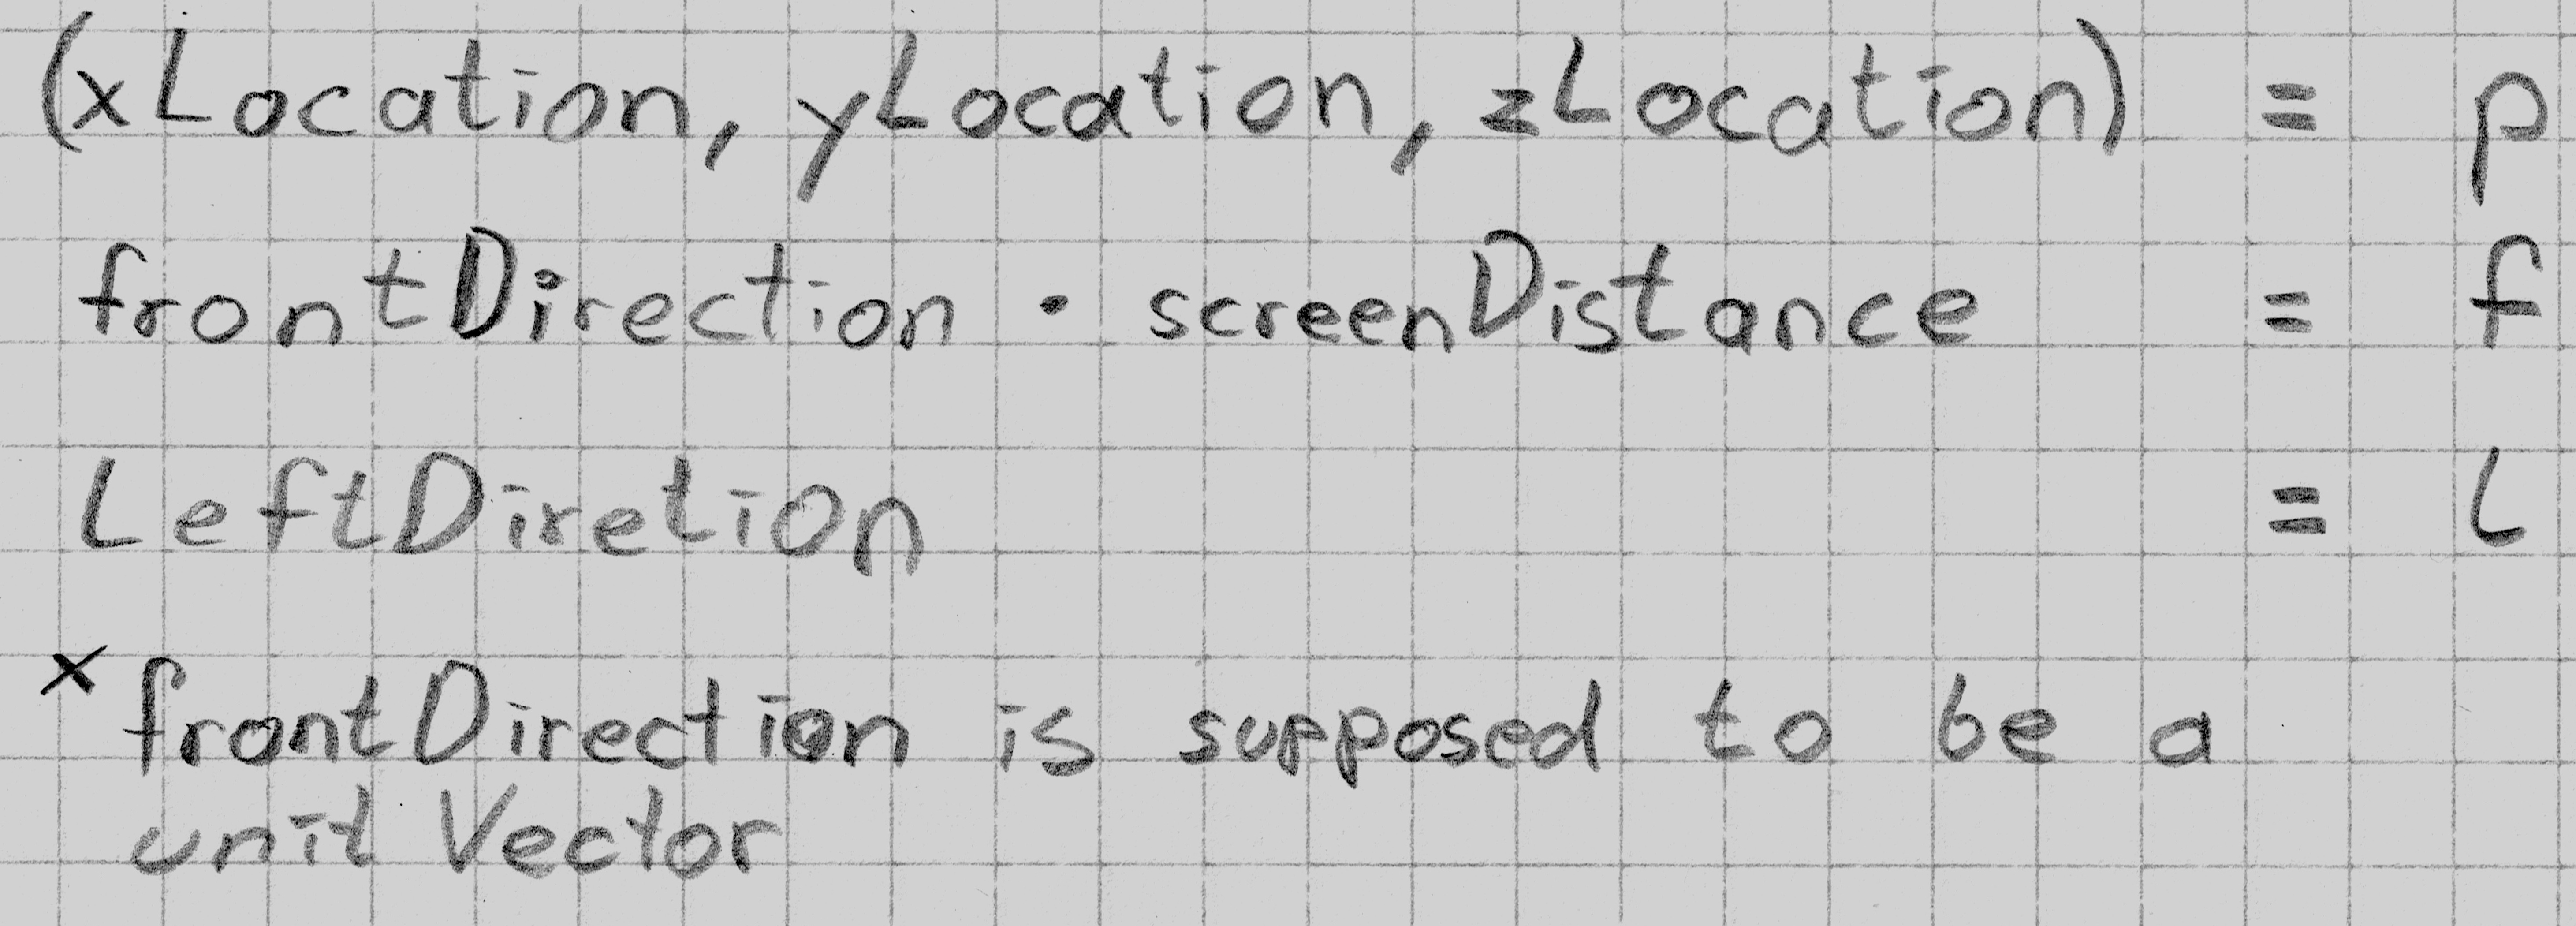 (xLocation, yLocation, zLocation) = p
frontDirection · screenDistance = f
LeftDiretion = L
* frontDirection is supposed to be a
unit Vector